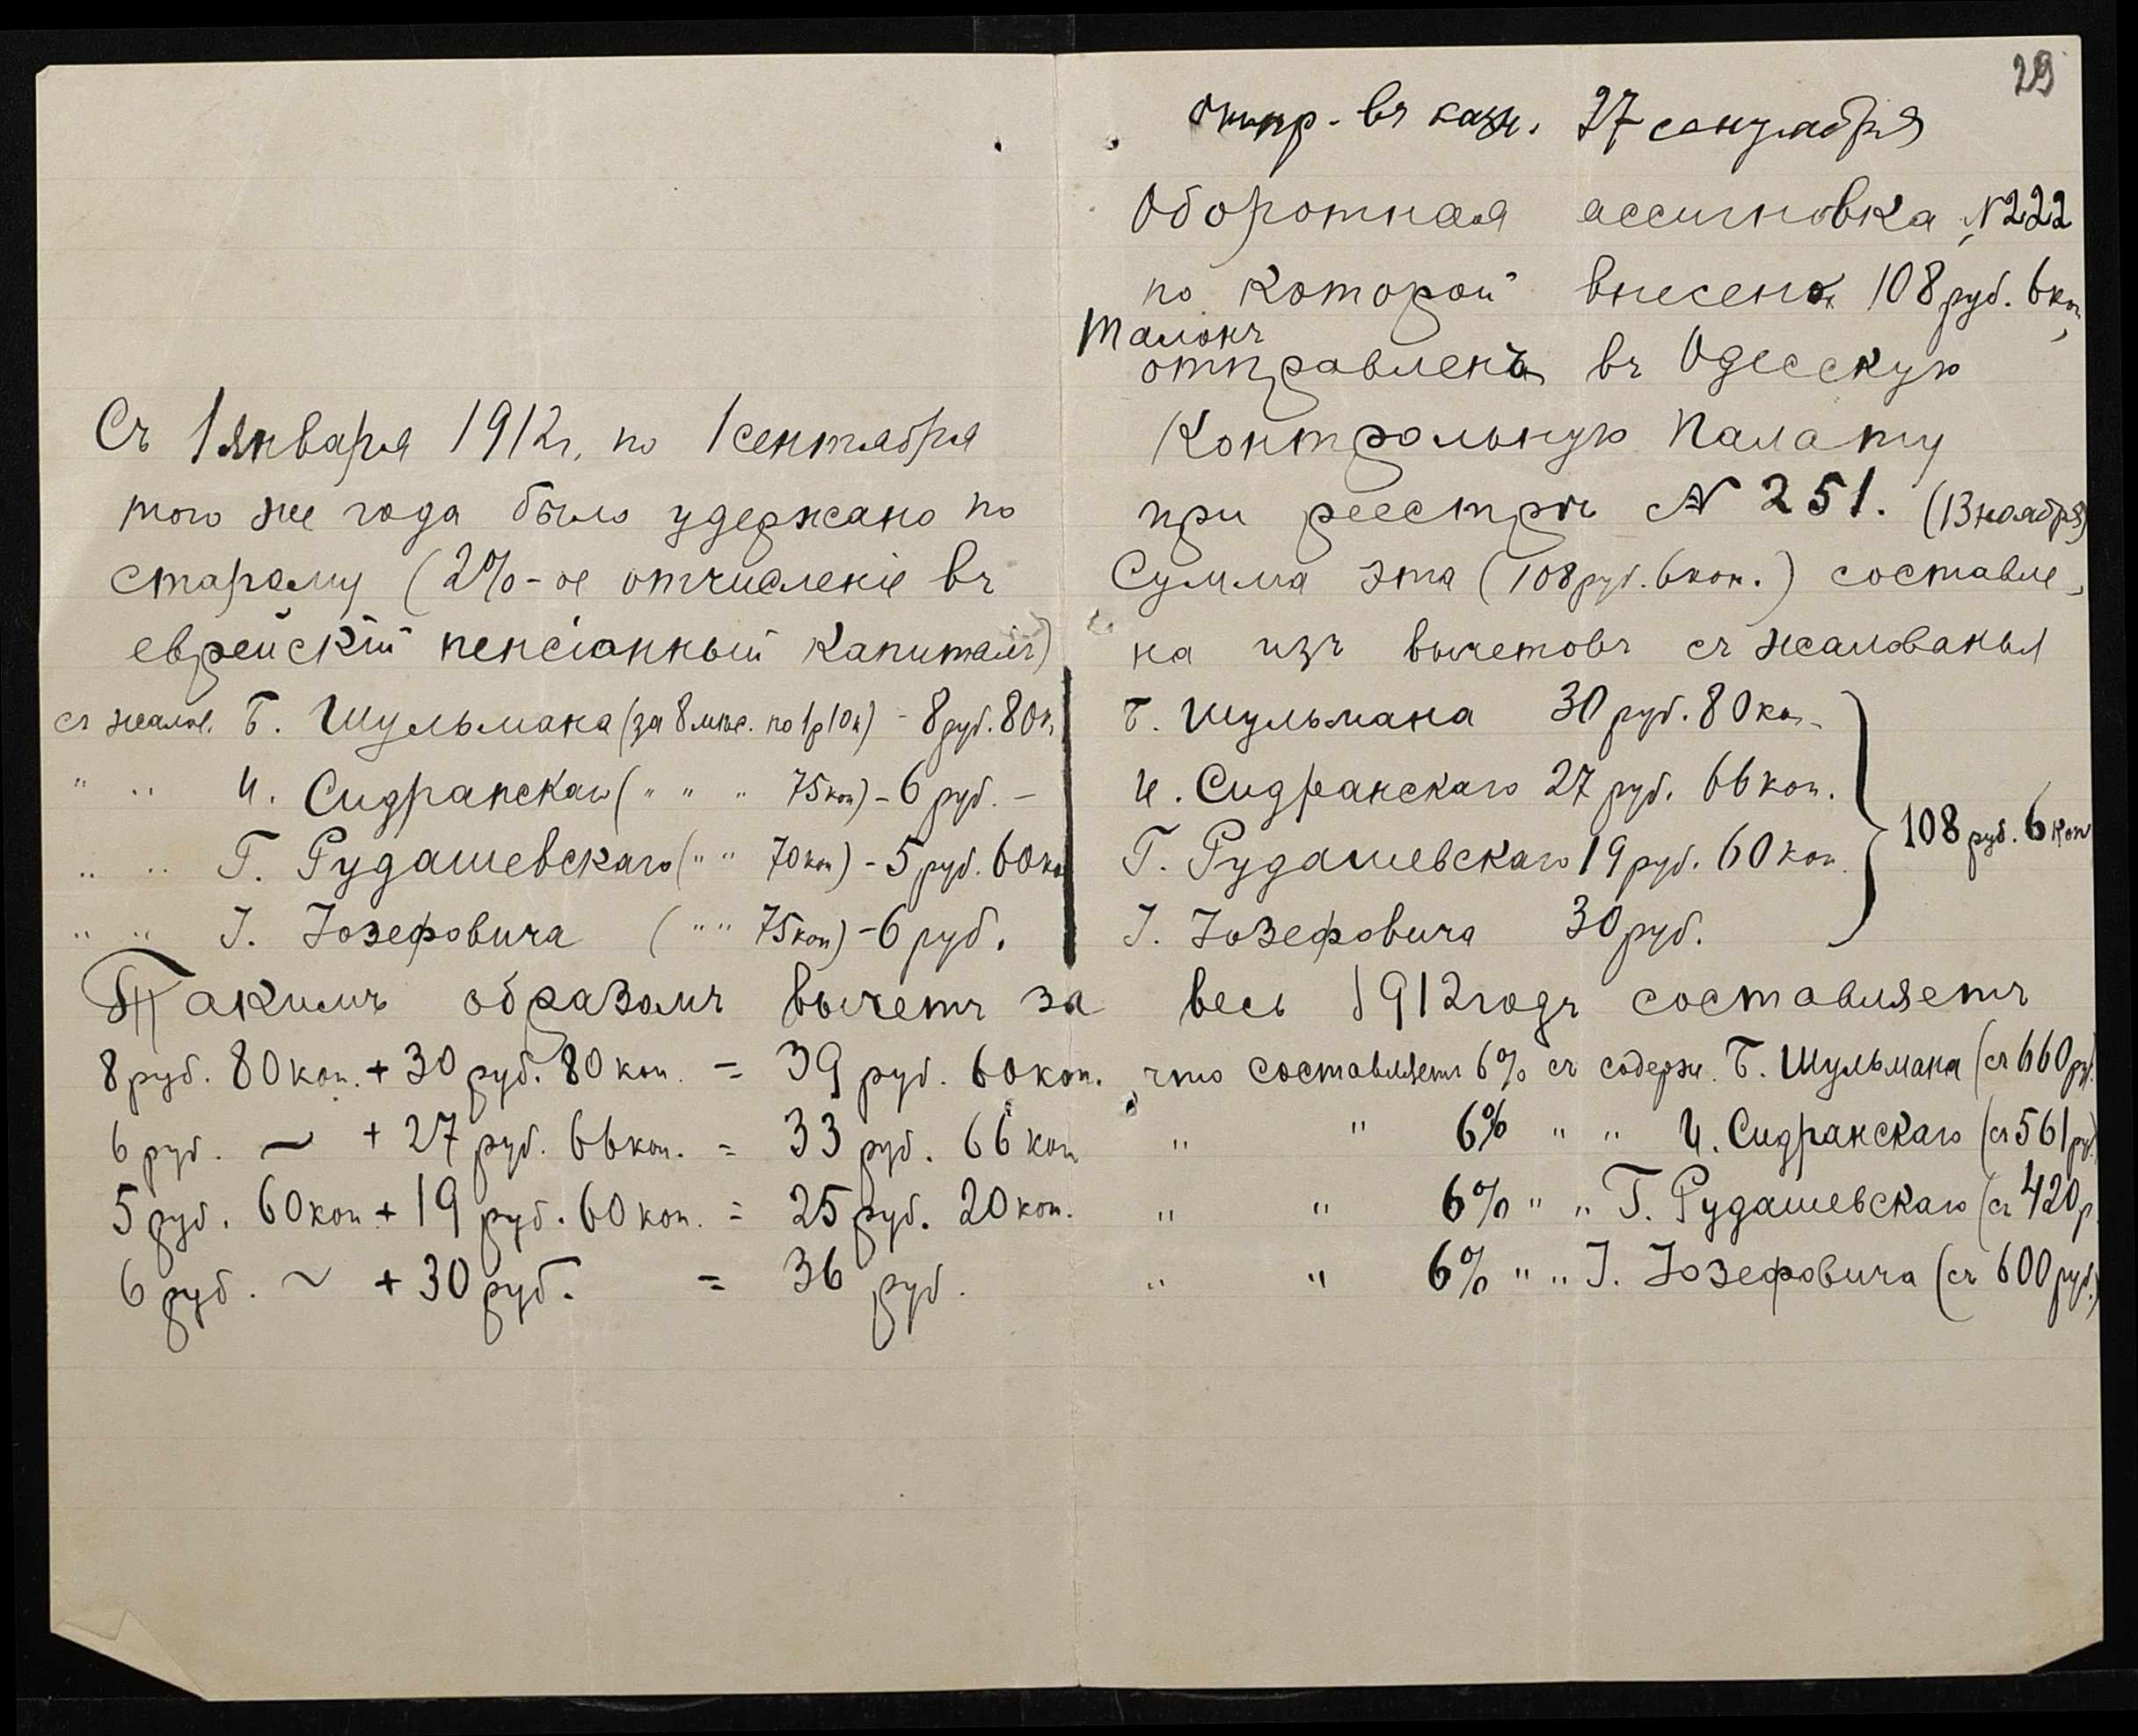 29
отпр. въ казн. 27 сентября
Оборотная ассигновка №222
по которой внесено 108 руб. 6 коп,
Талонъ
отправленъ въ Одесскую
Контрольную Палату
при реестрѣ № 251. (13 ноября)
Сумма эта (108 руб. 6 коп.) составле-
на изъ вычетовъ съ жалованья
Б. Шульмана 30 руб. 80 коп.
И. Сидранскаго 27 руб. 66 коп.
Г. Рудашевскаго 19 руб. 60 коп.
І. Іозефовича 30 руб.
108 руб. 6 коп
Съ 1 января 1912 г. по 1 сентября
того же года было удержано по
старому (2%-ое отчисленіе въ
еврейскій пенсіонный капиталъ)
съ жалов. Б. Шульмана (за 8 мѣс. по 1 р 10 к) - 8 руб. 80 к
" " И. Сидранскаго (" " " 75 коп) - 6 руб. -
" " Г. Рудашевскаго (" " 70 коп) - 5 руб. 60 ко
" " І. Іозефовича (" " 75 коп) - 6 руб.
Такимъ образомъ вычетъ за весь 1912 годъ составляетъ
8 руб. 80 коп. + 30 руб. 80 коп. = 39 руб. 60 коп., что составляетъ 6% съ содерж. Б. Шульмана (съ 660 руб.)
6 руб. ~ + 27 руб. 66 коп. = 33 руб. 66 коп " " 6% " " И. Сидранскаго (съ 561 руб.)
5 руб. 60 коп + 19 руб. 60 коп. = 25 руб. 20 коп. " " 6% " " Г. Рудашевскаго (съ 420 р
6 руб. ~ + 30 руб. = 36 руб. " " 6% " " І. Іозефовича (съ 600 руб.)